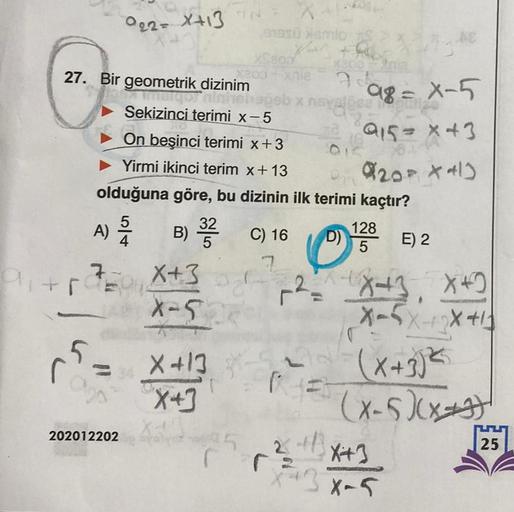 a22 = x+13
27. Bir geometrik dizinim
a8 = x-5
▶ Sekizinci terimi x-5
a15 = x+3
▶ On beşinci terimi x+3
▶ Yirmi ikinci terim x+13
a20 = x+13
olduğuna göre, bu dizinin ilk terimi kaçtır?
A) 5/4 B) 32/5 C) 16 D) 128/5 E) 2
r^7 = x+3/x-5
r^2 = x+3/x-5 . x+3/x+13
r^5 = x+13/x+3
r^2 = (x+3)^2/(x-5)(x+3)
r^2 = x+3/x-5
202012202
25